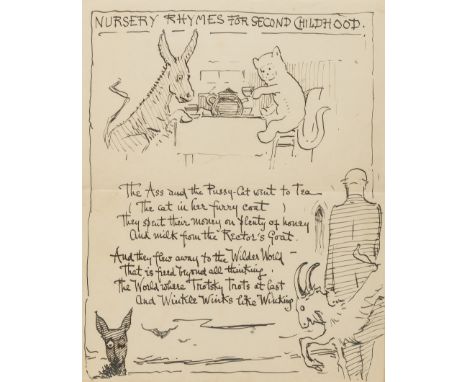 NURSERY RHYMES FOR SECOND CHILDHOOD.
The Ass and the Pussy-Cat went to Tea
(The cat in her furry coat)
They spent their money on plenty of honey
And milk from the Rector's Goat.
And they flew away to the Wilder World —
That is freed beyond all thinking,
The World where Trotsky Trots at last
And Winkle Winks like Winking